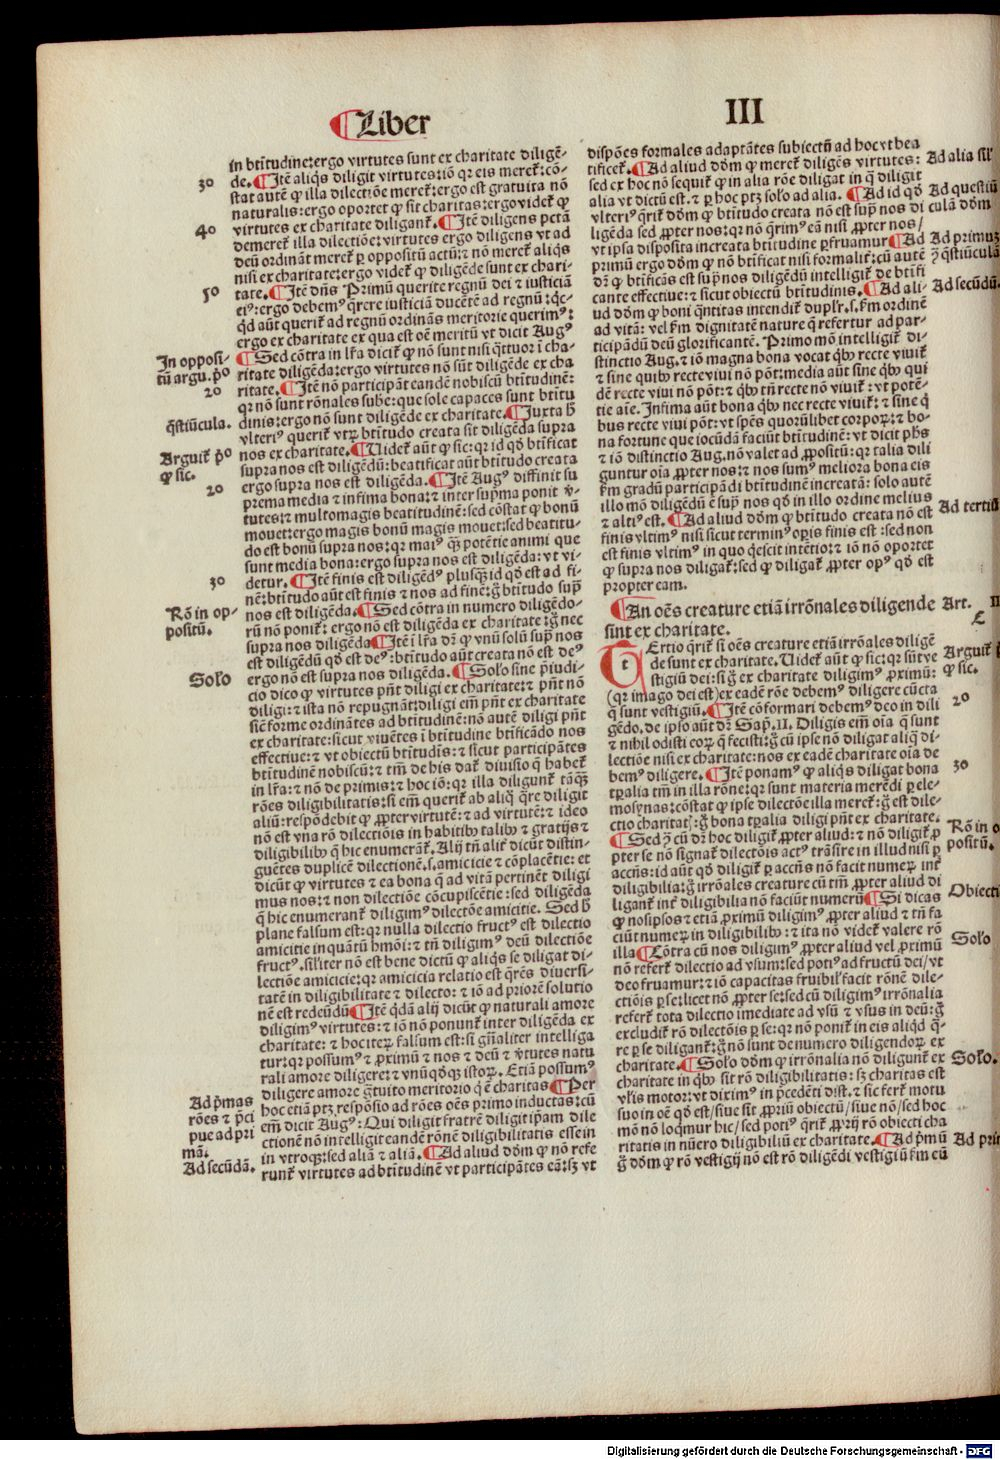 ¶Liber
III
in btĩtudine:ergo virtutes sunt ex charitate diligẽ-
de.¶Itẽ aliq̃s diligit virtutes:iõ qr eis meret̃:cõ-
stat autẽ ꝙ illa dilectiõe meret̃:ergo est gratuita nõ
naturalis:ergo oportet ꝙ sit charitas:ergo videt̃ ꝙ
virtutes ex charitate diligant̃.¶Itẽ diligens pctã
demeret̃ illa dilectiõe:virtutes ergo diligens vt ad
deũ ordinãt meret̃ ꝑ oppositũ actũ:⁊ nõ meret̃ aliq̃s
nisi ex charitate:ergo videt̃ ꝙ diligẽde sunt ex chari-
tate.¶Itẽ dñs Primũ querite regnũ dei ⁊ iusticiã
eiꝰ:ergo debemꝰ q̃rere iusticiã ducẽtẽ ad regnũ:qc-
q̃d aũt querit̃ ad regnũ ordinãs meritorie querimꝰ:
ergo ex charitate ex qua est oẽ meritũ vt dicit Augꝰ
¶Sed cõtra in lr̃a dicit̃ ꝙ nõ sunt nisi q̃ttuor ĩ cha-
ritate diligẽda:ergo virtutes nõ sũt diligẽde ex cha
ritate.¶Itẽ nõ participãt eandẽ nobiscũ btĩtudinẽ:
qr nõ sunt rõnales sube:que sole capaces sunt btĩtu
dinis:ergo nõ sunt diligẽde ex charitate.¶Juxta h̃
vlteriꝰ querit̃ vtꝝ btĩtudo creata sit diligẽda supra
nos ex charitate.¶Uidet̃ aũt ꝙ sic:qr id qd̃ btĩficat
supra nos est diligẽdũ:beatificat aũt btĩtudo creata
ergo supra nos est diligẽda.¶Itẽ Augꝰ diffinit su
prema media ⁊ infima bona:⁊ inter sup̃ma ponit v̾-
tutes:⁊ multomagis beatitudinẽ:sed cõstat ꝙ bonũ
mouet:ergo magis bonũ magis mouet:sed beatitu-
do est bonũ supra nos:qr maiꝰ q̃ꝫ potẽtie animi que
sunt media bona:ergo supra nos est diligẽda:vt vi-
detur.¶Itẽ finis est diligẽdꝰ plusq̃ꝫ id qd̃ est ad fi-
nẽ:btĩtudo aũt est finis ⁊ nos ad finẽ:g̃ btĩtudo sup̃
nos est diligẽda.¶Sed cõtra in numero diligẽdo-
rũ nõ ponit̃: ergo nõ est diligẽda ex charitate:g̃ nec
supra nos diligẽda¶Itẽ ĩ lr̃a dr̃ ꝙ vnũ solũ sup̃ nos
est diligẽdũ qd̃ est deꝰ:btĩtudo aũt creata nõ est deꝰ
ergo nõ est supra nos diligẽda.¶Solo sine p̃iudi-
cio dico ꝙ virtutes pñt diligi ex charitate:⁊ pñt nõ
diligi:⁊ ista nõ repugnãt:diligi em̃ pñt ex charitate
sicẽ forme ordinãtes ad btĩtudinẽ:nõ autẽ diligi pñt
ex charitate:sicut viuẽtes ĩ btĩtudine btĩficãdo nos
effectiue:⁊ vt obiectũ btĩtudĩs:⁊ sicut participãtes
btĩtudinẽ nobiscũ:⁊ tm̃ de his dat̃ diuisio q̃ habet̃
in lr̃a:⁊ nõ de primis:⁊ hoc iõ:qr illa diligunt̃ tãq̃ꝫ
rões diligibilitatis:si em̃ querit̃ ab aliq̃ q̃re diligit
aliũ:respõdebit ꝙ ꝓpter virtutẽ:⁊ ad virtutẽ:⁊ ideo
nõ est vna rõ dilectiõis in habitibꝰ talibꝰ ⁊ gratijs ⁊
diligibilibꝰ q̃ hic enumerãt̃. Alij tñ alit̃ dicũt distin-
guẽtes duplicẽ dilectionẽ.s.amicicie ⁊ cõplacẽtie: et
dicũt ꝙ virtutes ⁊ ea bona q̃ ad vitã pertinẽt diligi
mus nos:⁊ non dilectiõe cõcupiscẽtie:sed diligẽda
q̃ hic enumerant̃ diligimꝰ dilectõe amicitie. Sed h̃
plane falsum est:qr nulla dilectio fructꝰ est dilectio
amicitie inquãtũ hm̃oi:⁊ tñ diligimꝰ deũ dilectiõe
fructꝰ.silĩter nõ est bene dictũ ꝙ aliq̃s se diligat di-
lectiõe amicicie:qr amicicia relatio est q̃rẽs diuersi-
tatẽ in diligibilitate ⁊ dilecto: ⁊ iõ ad priorẽ solutio
nẽ est redeũdũ¶Itẽ q̃dã alij dicũt ꝙ naturali amore
diligimꝰ virtutes:⁊ iõ nõ ponunt̃ inter diligẽda ex
charitate: ⁊ hoc iteꝝ falsum est:si gñaliter intelliga
tur:qr possumꝰ ⁊ ꝓximũ ⁊ nos ⁊ deũ ⁊ v̾tutes natu
rali amore diligere:⁊ vnũqd̃qꝫ istoꝝ. Etiã possumꝰ
diligere amore g̃tuito meritorio q̃ ẽ charitas¶Per
hoc etiã ptꝫ respõsio ad rões oẽs primo inductas:cũ
em̃ dicit Augꝰ: Qui diligit fratrẽ diligit ip̃am dile
ctionẽ nõ intelligit eandẽ rõnẽ diligibilitatis esse in
in vtroqꝫ:sed aliã ⁊ aliã.¶Ad aliud dõm ꝙ nõ refe
runt̃ virtutes ad btĩtudinẽ vt participãtes eã:sꝫ vt
30
40
50
In opposi-
tũ argu.p̃o
20
q̃stiũcula.
Arguit̃ p̃o
ꝙ sic.
20
30
Rõ in op-
positũ.
Solo
Ad p̃mas
rões ⁊ p̃ci
pue ad pri
mã.
Ad secũdã.
dispões formales adaptãtes subiectũ ad hoc vt bea
tificet̃.¶Ad aliud dõm ꝙ meret̃ diligẽs virtutes:
sed ex hoc nõ sequit̃ ꝙ in alia rõe diligat in q̃ diligit
alia vt dictũ est.⁊ ꝑ hoc ptꝫ solo ad alia. ¶Ad id qd̃
vlteriꝰ q̃rit̃ dõm ꝙ btĩtudo creata nõ est sup̃ nos di
ligẽda sed ꝓpter nos:qr nõ q̃rimꝰ eã nisi ꝓpter nos/
vt ipsa disposita increata btĩtudine ꝑfruamur¶Ad
primũ ergo dõm ꝙ nõ btĩficat nisi formalit̃:cũ autẽ
dr̃ ꝙ btĩficans est sup̃ nos diligẽdũ intelligit̃ de btĩfi
cante effectiue:⁊ sicut obiectũ btĩtudinis.¶Ad ali-
ud dõm ꝙ boni q̃ntitas intendit̃ duplr̃.s.fm ordinẽ
ad vitã: vel fm dignitatẽ nature q̃ refertur ad par-
ticipãdũ deũ glorificantẽ. Primo mõ intelligit̃ di-
stinctio Aug.⁊ iõ magna bona vocat qͥbꝰ recte viuit̃
⁊ sine quibꝰ recte viui nõ põt:media aũt sine qͥbꝰ qui
dẽ recte viui nõ põt:⁊ qͥbꝰ tñ recte nõ viuit̃ : vt potẽ-
tie aĩe. Infima aũt bona qͥbꝰ nec recte viuit̃: ⁊ sine q̃
bus recte viui põt: vt spẽs quorũlibet corpoꝝ: ⁊ bo-
na fortune que iocũdã faciũt btĩtudinẽ: vt dicit phs
⁊ iõ distinctio Aug.nõ valet ad ꝓpositũ:qr talia dili
guntur oĩa ꝓpter nos:⁊ nos sumꝰ meliora bona eis
fm gradũ participãdi btĩtudinẽ increatã: solo autẽ
illo mõ diligẽdũ ẽ sup̃ nos qd̃ in illo ordine melius
⁊ altiꝰ est. ¶Ad aliud dõm ꝙ btĩtudo creata nõ est
finis vltimꝰ nisi sicut terminꝰ oꝑis finis est :sed non
est finis vltimꝰ in quo q̃escit intẽtio:⁊ iõ nõ oportet
ꝙ supra nos diligat̃:sed ꝙ diligat̃ ꝓpter opꝰ qd̃ est
propter eam.
¶An oẽs creature etiã irrõnales diligende
sint ex charitate.
TErtio q̃rit̃ si oẽs creature etiã irrõales diligẽ
de sunt ex charitate.Uidet̃ aũt ꝙ sic:qr sũt ve
stigiũ dei:si g̃ ex charitate diligimꝰ ꝓximũ:
(qr imago dei est)ex eadẽ rõe debemꝰ diligere cũcta
q̃ sunt vestigiũ.¶Itẽ cõformari debemꝰ deo in dili
gẽdo.de ipso aũt dr̃ Sap̃.II. Diligis em̃ oĩa q̃ sunt
⁊ nihil odisti eoꝝ q̃ fecisti:g̃ cũ ipse nõ diligat aliq̃ di-
lectiõe nisi ex charitate:nos ex eadẽ charitate oĩa de
bemꝰ diligere.¶Itẽ ponamꝰ ꝙ aliq̃s diligat bona
tꝑalia tm̃ in illa rõne:qr sunt materia merẽdi ꝑ ele-
mosynas:cõstat ꝙ ipse dilectõe illa meret̃:g̃ est dile-
ctio charitat̃:g̃ bona tꝑalia diligi pñt ex charitate.
¶Sed ꝯ̃ cũ dr̃ hoc diligit̃ ꝓpter aliud:⁊ nõ diligit̃ ꝓ
pter se nõ signat̃ dilectõis actꝰ trãsire in illud nisi ꝑ
accñs:id aũt qd̃ diligit̃ ꝑ accñs nõ facit numeꝝ inẗ
diligibilia:g̃ irrõales creature cũ tm̃ ꝓpter aliud di
ligant̃ inẗ diligibilia nõ faciũt numeꝝ¶Si dicas
ꝙ nosipsos ⁊ etiã ꝓximũ diligimꝰ ꝓpter aliud ⁊ tñ fa
ciũt numeꝝ in diligibilibꝰ: ⁊ ita nõ videt̃ valere rõ
illa¶Cõtra cũ nos diligimꝰ ꝓpter aliud vel ꝓximũ
nõ refert̃ dilectio ad vsum:sed potiꝰ ad fructũ dei/vt
deo fruamur:⁊ iõ capacitas fruibil̃ facit rõnẽ dile-
ctiõis ꝑ se:licet nõ ꝓpter se:sed cũ diligimꝰ irrõnalia
refert̃ tota dilectio imediate ad vsũ ⁊ vsus in deũ:g̃
excludit̃ rõ dilectõis ꝑ se:qr nõ ponit̃ in eis aliq̃d q̃-
re ꝑ se diligant̃:g̃ nõ sunt de numero diligendoꝝ ex
charitate.¶Solo dõm ꝙ irrõnalia nõ diligunt̃ ex
charitate in qͥbꝰ sit rõ diligibilitatis: sꝫ charitas est
vlis motor:vt diximꝰ in p̃cedẽti dist.⁊ sic fert̃ motu
suo in oẽ qd̃ est/siue sit ꝓpriũ obiectũ/siue nõ/sed hoc
mõ nõ loq̃mur hic/sed potiꝰ q̃rit̃ ꝓprij rõ obiecti cha
ritatis in nũero diligibiliũ ex charitate.¶Ad p̃mũ
g̃ dõm ꝙ rõ vestigij nõ est rõ diligẽdi vestigiũ fm eũ
Ad alia sil̃
Ad questiũ
culã dõm
Ad primuꝫ
ꝯ̃ q̃stiũculã
Ad secũdũ.
Ad tertiũ
Art. II
Arguit̃
ꝙ sic.
20
30
Rõ in o
positũ.
Obiecti
Solo
Solo.
Ad pri
Digitalisierung gefördert durch die Deutsche Forschungsgemeinschaft - DFG